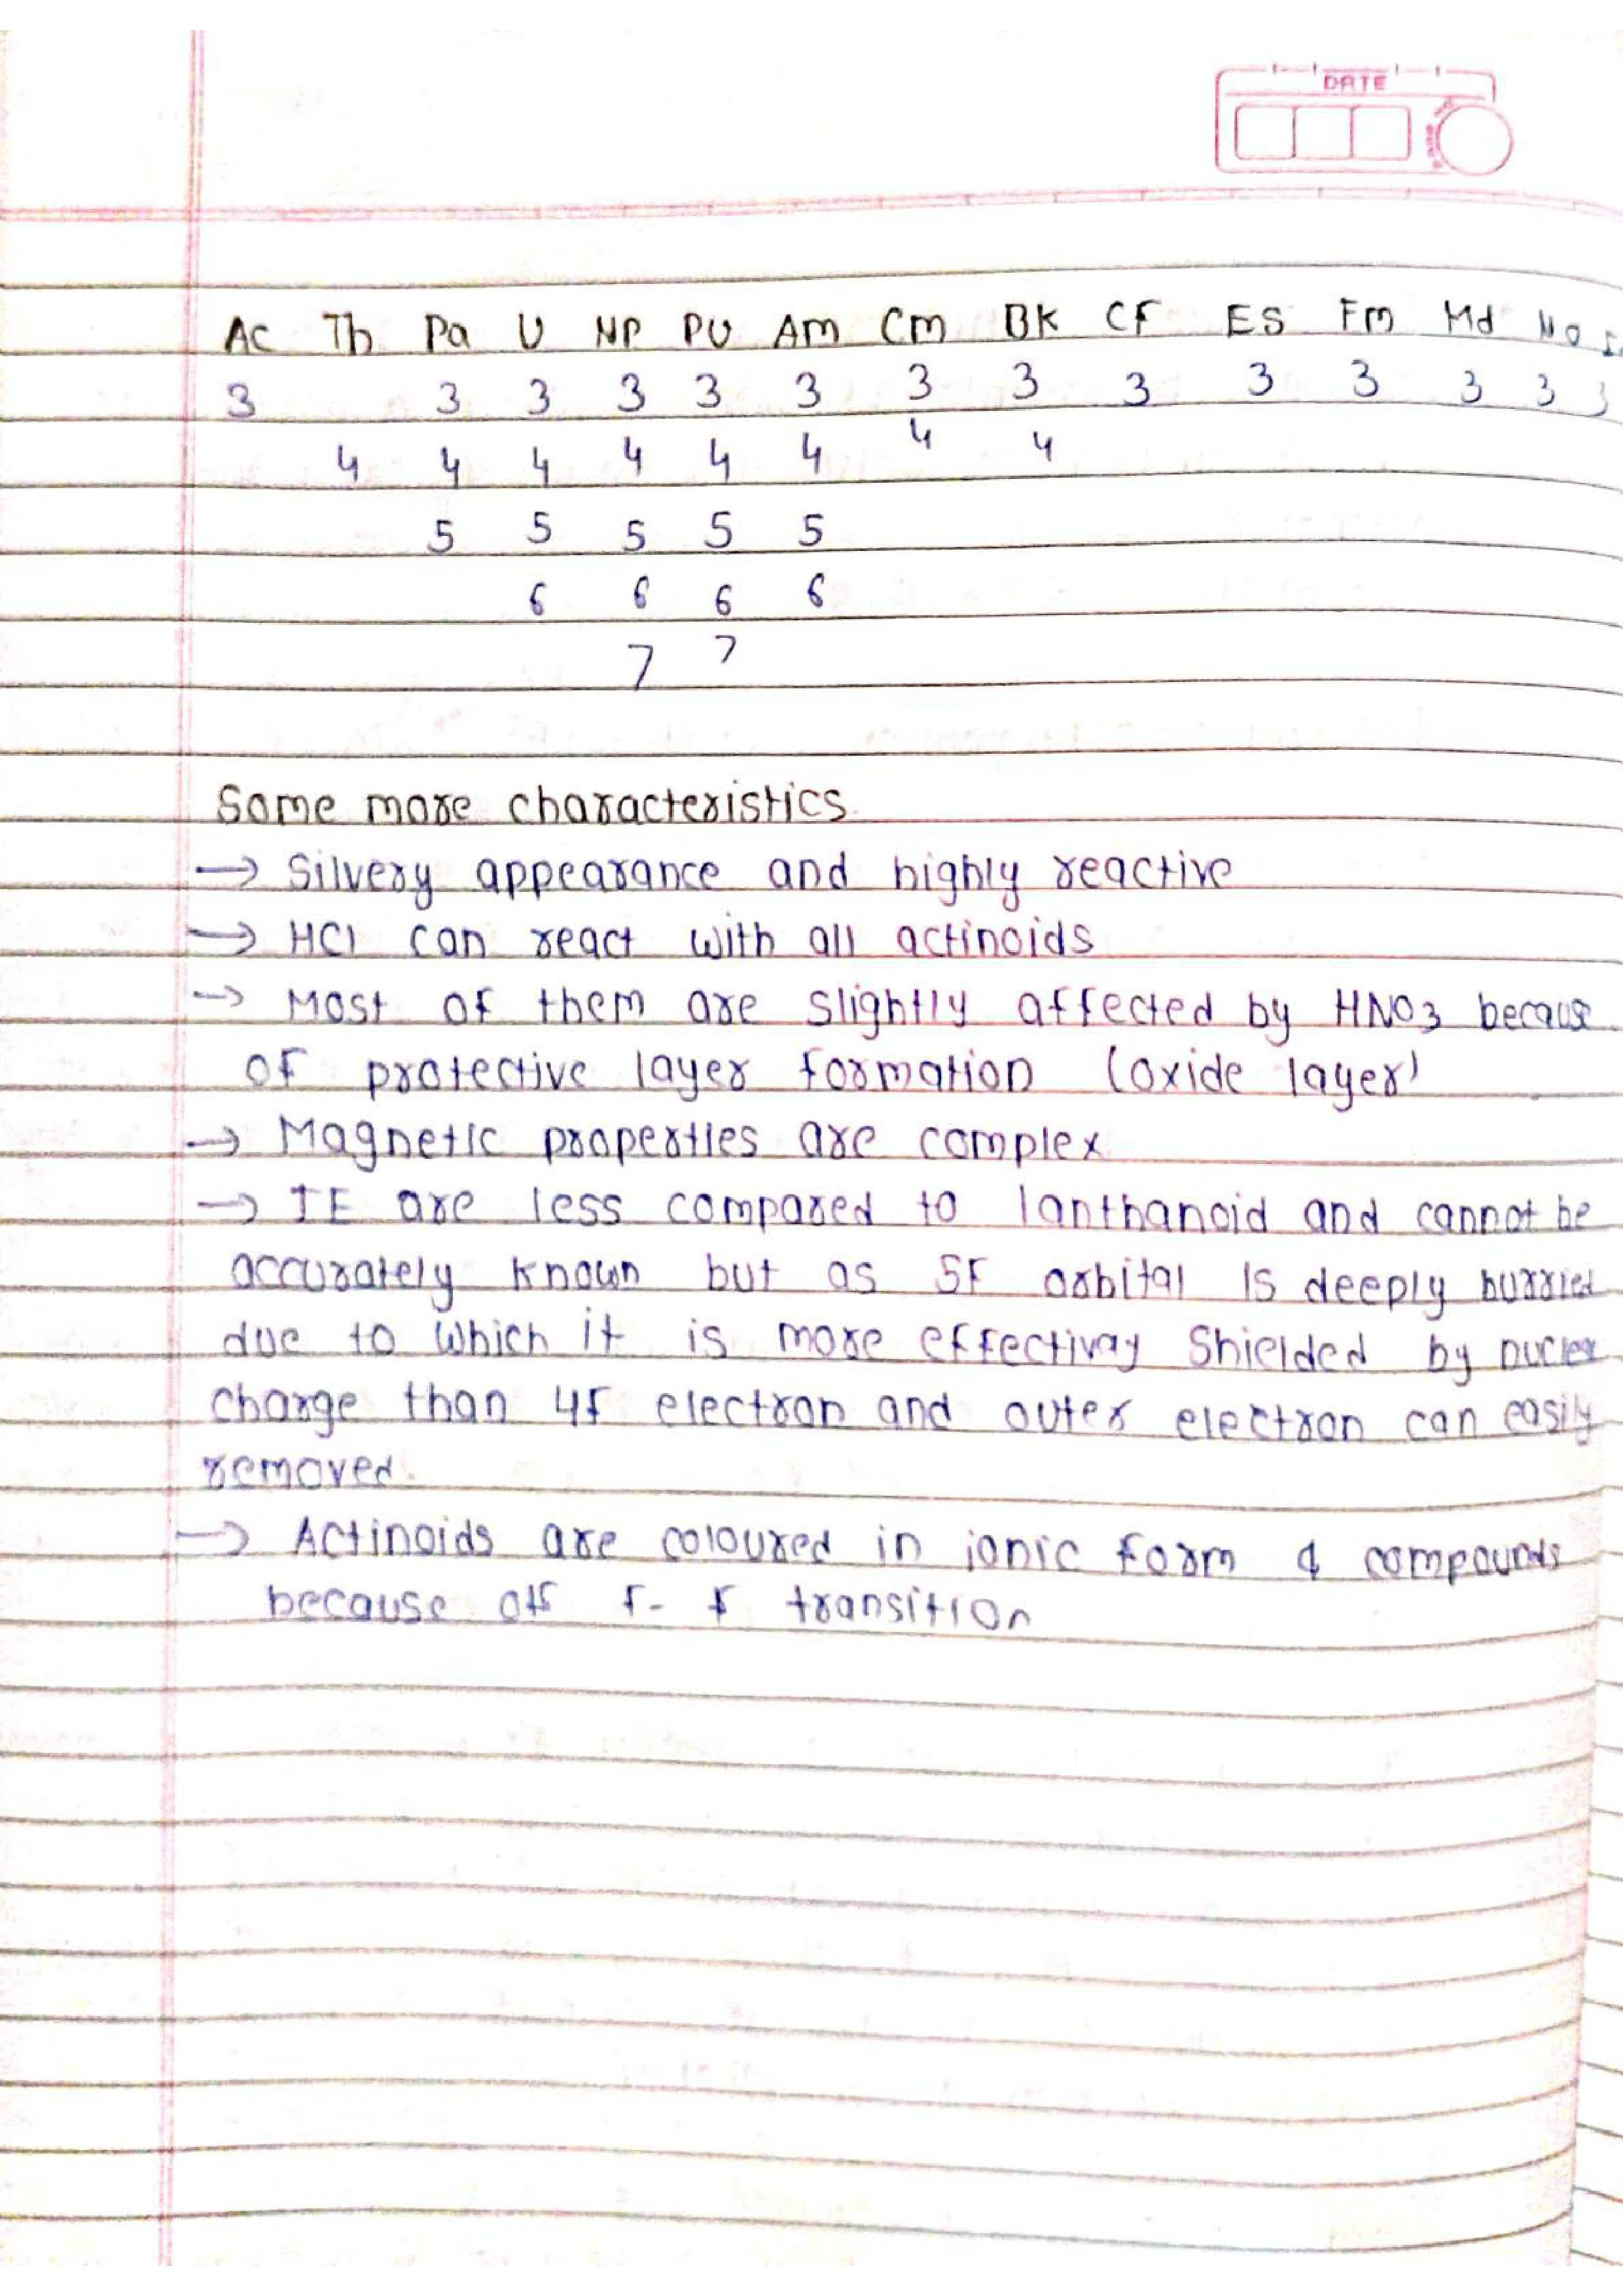 DATE
Ac Th Pa U Np PU Am Cm BK CF ES Fm Md No
3 3 3 3 3 3 3 3 3 3 3 3 3
4 4 4 4 4 4 4 4
5 5 5 5 5
6 6 6 6
7 7
Some more characteristics
→ Silvery appearance and highly reactive
→ HCl can react with all actinoids
→ Most of them are slightly affected by HNO3 becaus
of protective layer formation (oxide layer)
→ Magnetic propertles are complex
→ IE are less compared to lanthanoid and cannot be
accurately known but as 5F orbital is deeply burried
due to which it is more effectivay Shielded by nucler
charge than 4f electron and outer electron can easily
removed.
→ Actinoids are coloured in ionic form & compounds
because off f-f transition